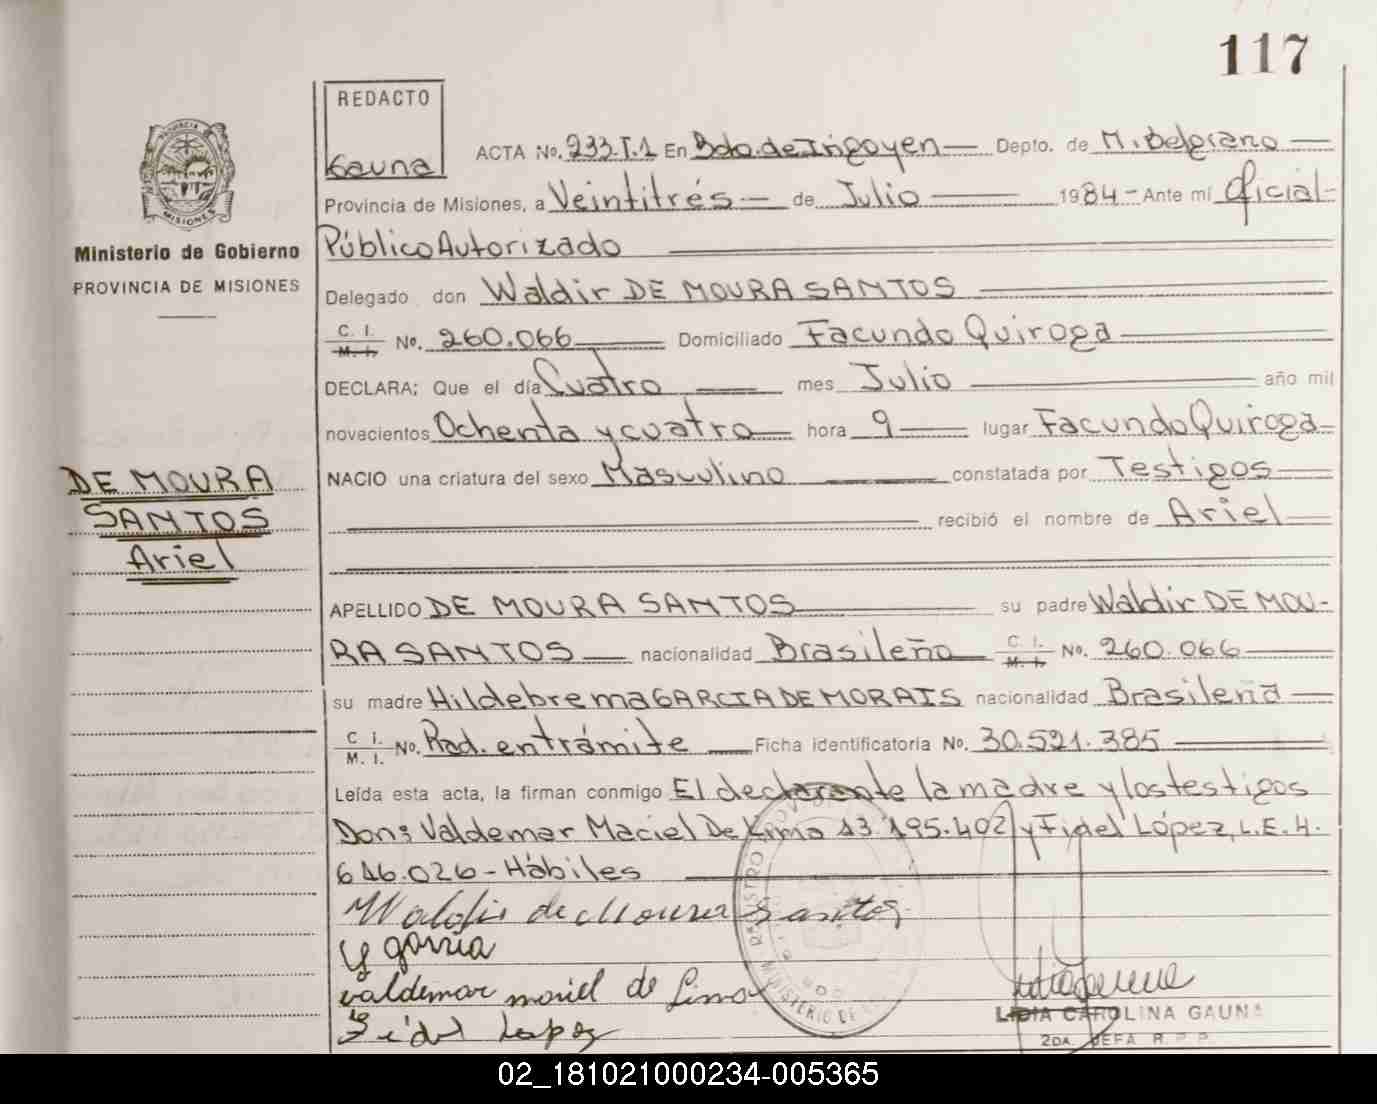 117
REDACTO
Gauna
ACTA No. 233.T.1 En Bdo. de Irigoyen Depto. de M. Belgrano
Provincia de Misiones, a Veintitrés de Julio 1984 - Ante mí Oficial
Público Autorizado
Delegado don Waldir DE MOURA SANTOS
C. I.
M. I. No. 260.066 Domiciliado Facundo Quiroga
DECLARA; Que el día Cuatro mes Julio año mil
novecientos Ochenta y cuatro hora 9 lugar Facundo Quiroga
NACIO una criatura del sexo Masculino constatada por Testigos
recibió el nombre de Ariel
APELLIDO DE MOURA SANTOS su padre Waldir DE MOU-
RA SANTOS nacionalidad Brasileño C. I. M. I. No. 260.066
su madre Hildebrema GARCIA DE MORAIS nacionalidad Brasileña
C. I.
M. I. No. Rad. en trámite Ficha identificatoria No. 30.521.385
Leída esta acta, la firman conmigo El declarante la madre y los testigos
Dons Valdemar Maciel De Lima 13.195.402 y Fidel López, L.E. 4.
616.026 - Hábiles
Waldir de Moura Santos
y garcia
valdemar masiel de Lima
Fidel Lopez
LIDIA CAROLINA GAUNA
2DA. JEFA R. P. P.
PROVINCIA DE MISIONES
Ministerio de Gobierno
PROVINCIA DE MISIONES
DE MOURA
SANTOS
Ariel
02_181021000234-005365